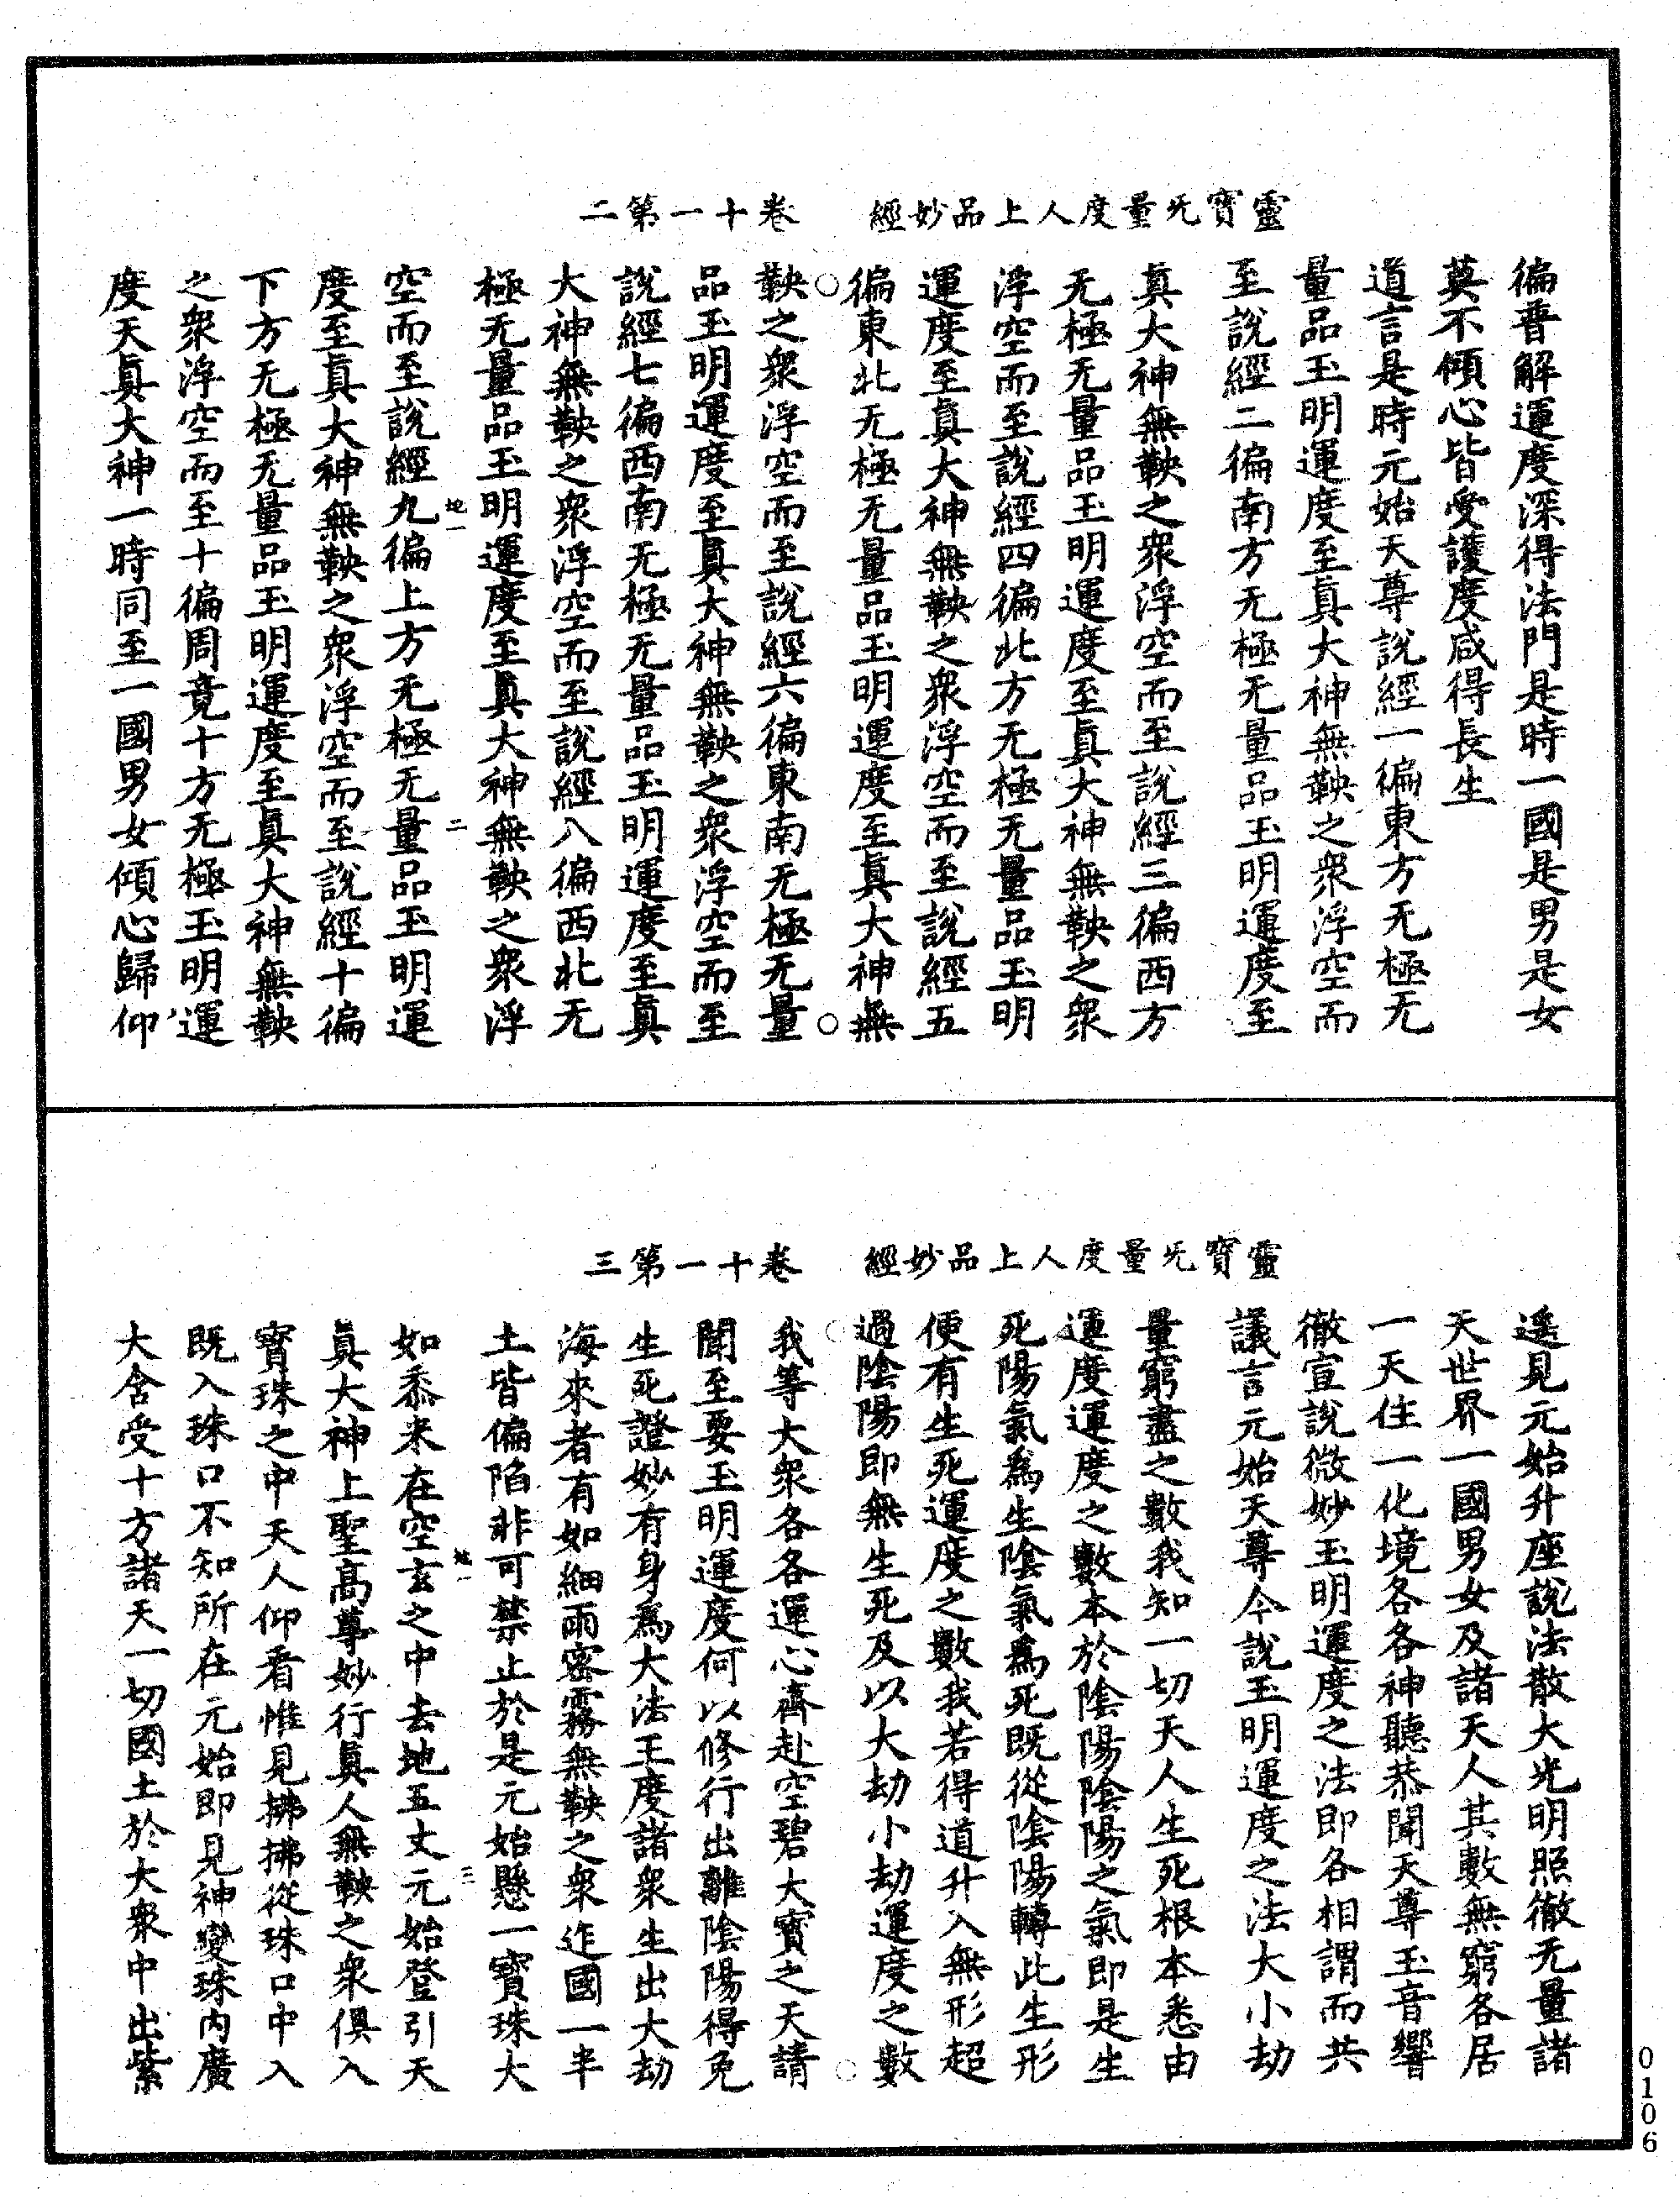 靈寶无量度人上品妙經 卷十一第二
徧普解運度深得法門是時一國是男是女
莫不傾心皆受護度咸得長生
道言是時元始天尊說經一徧東方无極无
量品玉明運度至真大神無鞅之眾浮空而
至說經二徧南方无極无量品玉明運度至
真大神無鞅之眾浮空而至說經三徧西方
无極无量品玉明運度至真大神無鞅之眾
浮空而至說經四徧北方无極无量品玉明
運度至真大神無鞅之眾浮空而至說經五
徧東北无極无量品玉明運度至真大神無
鞅之眾浮空而至說經六徧東南无極无量
品玉明運度至真大神無鞅之眾浮空而至
說經七徧西南无極无量品玉明運度至真
大神無鞅之眾浮空而至說經八徧西北无
極无量品玉明運度至真大神無鞅之眾浮
地一 二
空而至說經九徧上方无極无量品玉明運
度至真大神無鞅之眾浮空而至說經十徧
下方无極无量品玉明運度至真大神無鞅
之眾浮空而至十徧周竟十方无極玉明運
度天真大神一時同至一國男女傾心歸仰
靈寶无量度人上品妙經 卷十一第三
遙見元始升座說法散大光明照徹无量諸
天世界一國男女及諸天人其數無窮各居
一天住一化境各各神聽恭聞天尊玉音響
徹宣說微妙玉明運度之法即各相謂而共
議言元始天尊今說玉明運度之法大小劫
量窮盡之數我知一切天人生死根本悉由
運度運度之數本於陰陽陰陽之氣即是生
死陽氣為生陰氣為死既從陰陽轉此生形
便有生死運度之數我若得道升入無形超
過陰陽即無生死及以大劫小劫運度之數
我等大眾各各運心齊赴空碧大寶之天請
聞至要玉明運度何以修行出離陰陽得免
生死證妙有身為大法王度諸眾生出大劫
海來者有如細雨密霧無鞅之眾迮國一半
土皆偏陷非可禁止於是元始懸一寶珠大
地一 三
如黍米在空玄之中去地五丈元始登引天
真大神上聖高尊妙行真人無鞅之眾俱入
寶珠之中天人仰看惟見拂拂從珠口中入
既入珠口不知所在元始即見神變珠內廣
大含受十方諸天一切國土於大眾中出紫
0106